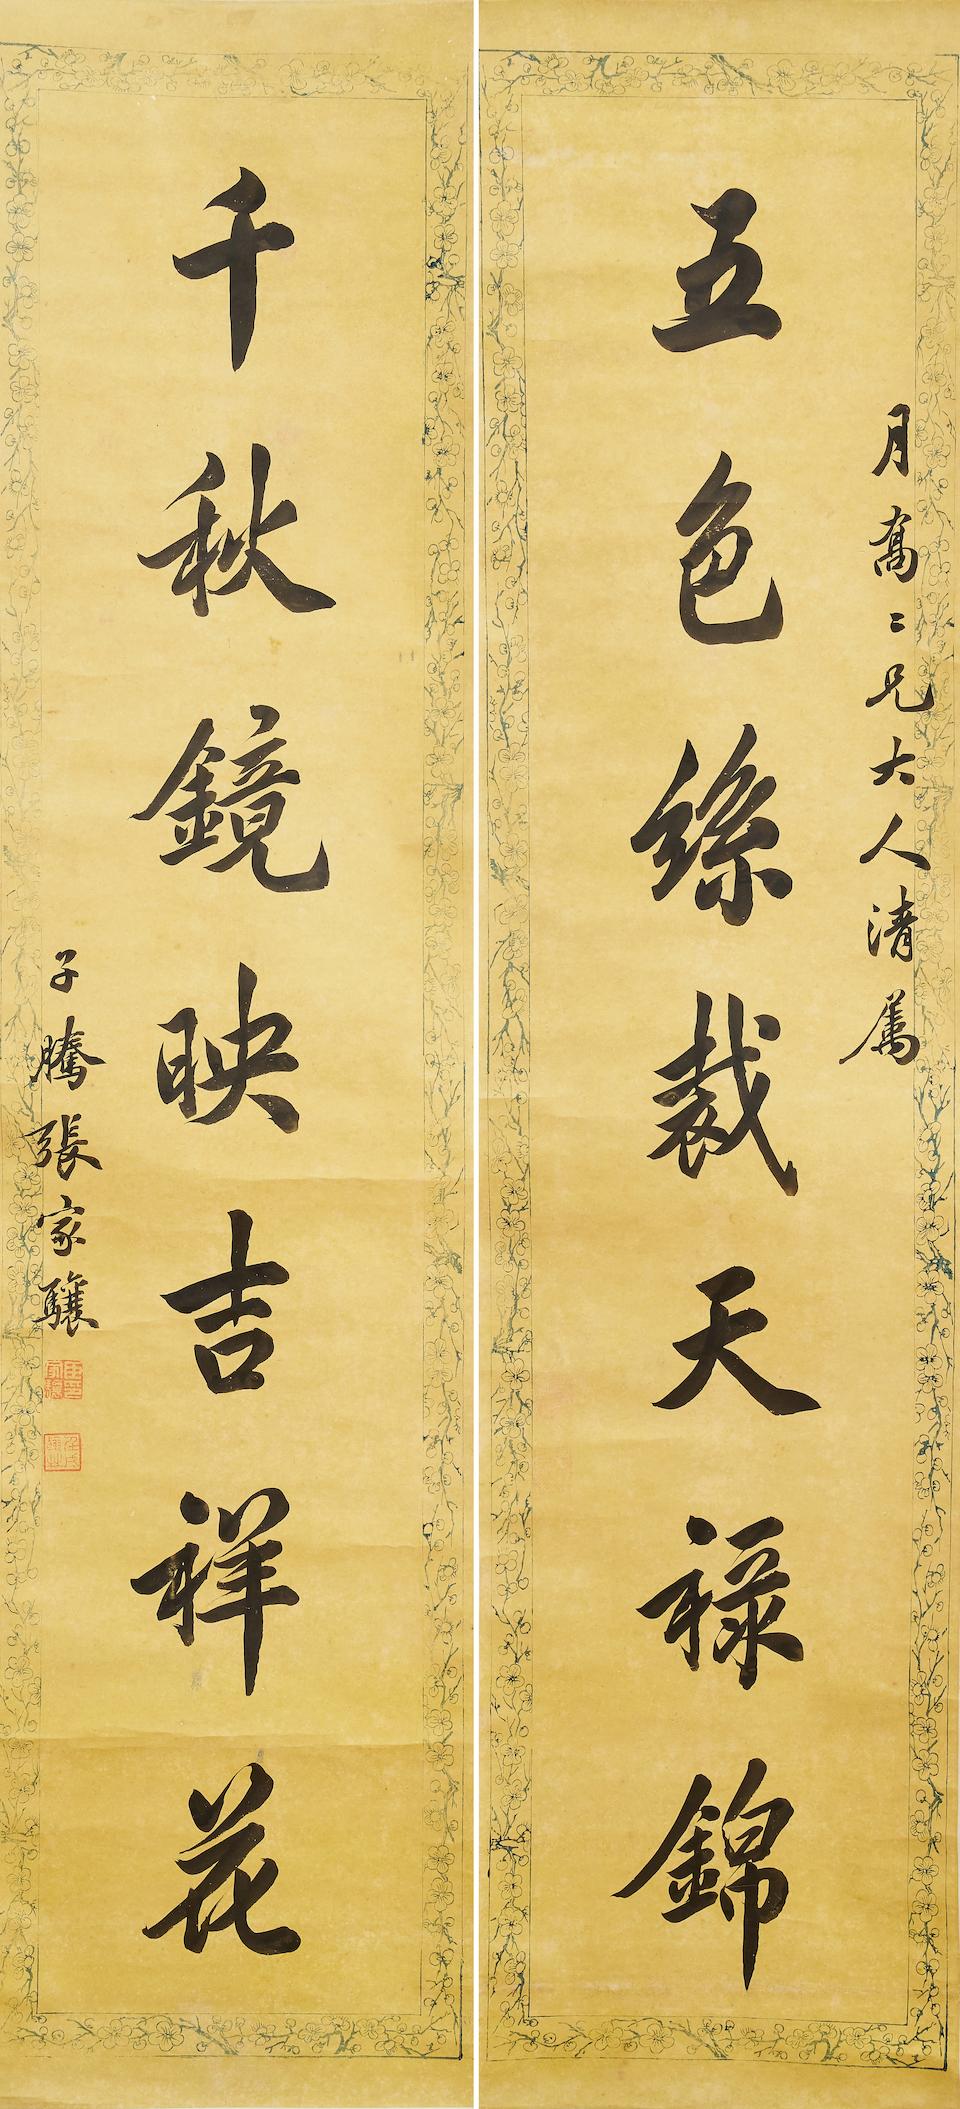 月喬二兄大人清属
五色絲裁天祿錦
千秋鏡映吉祥花
子騰張家驤